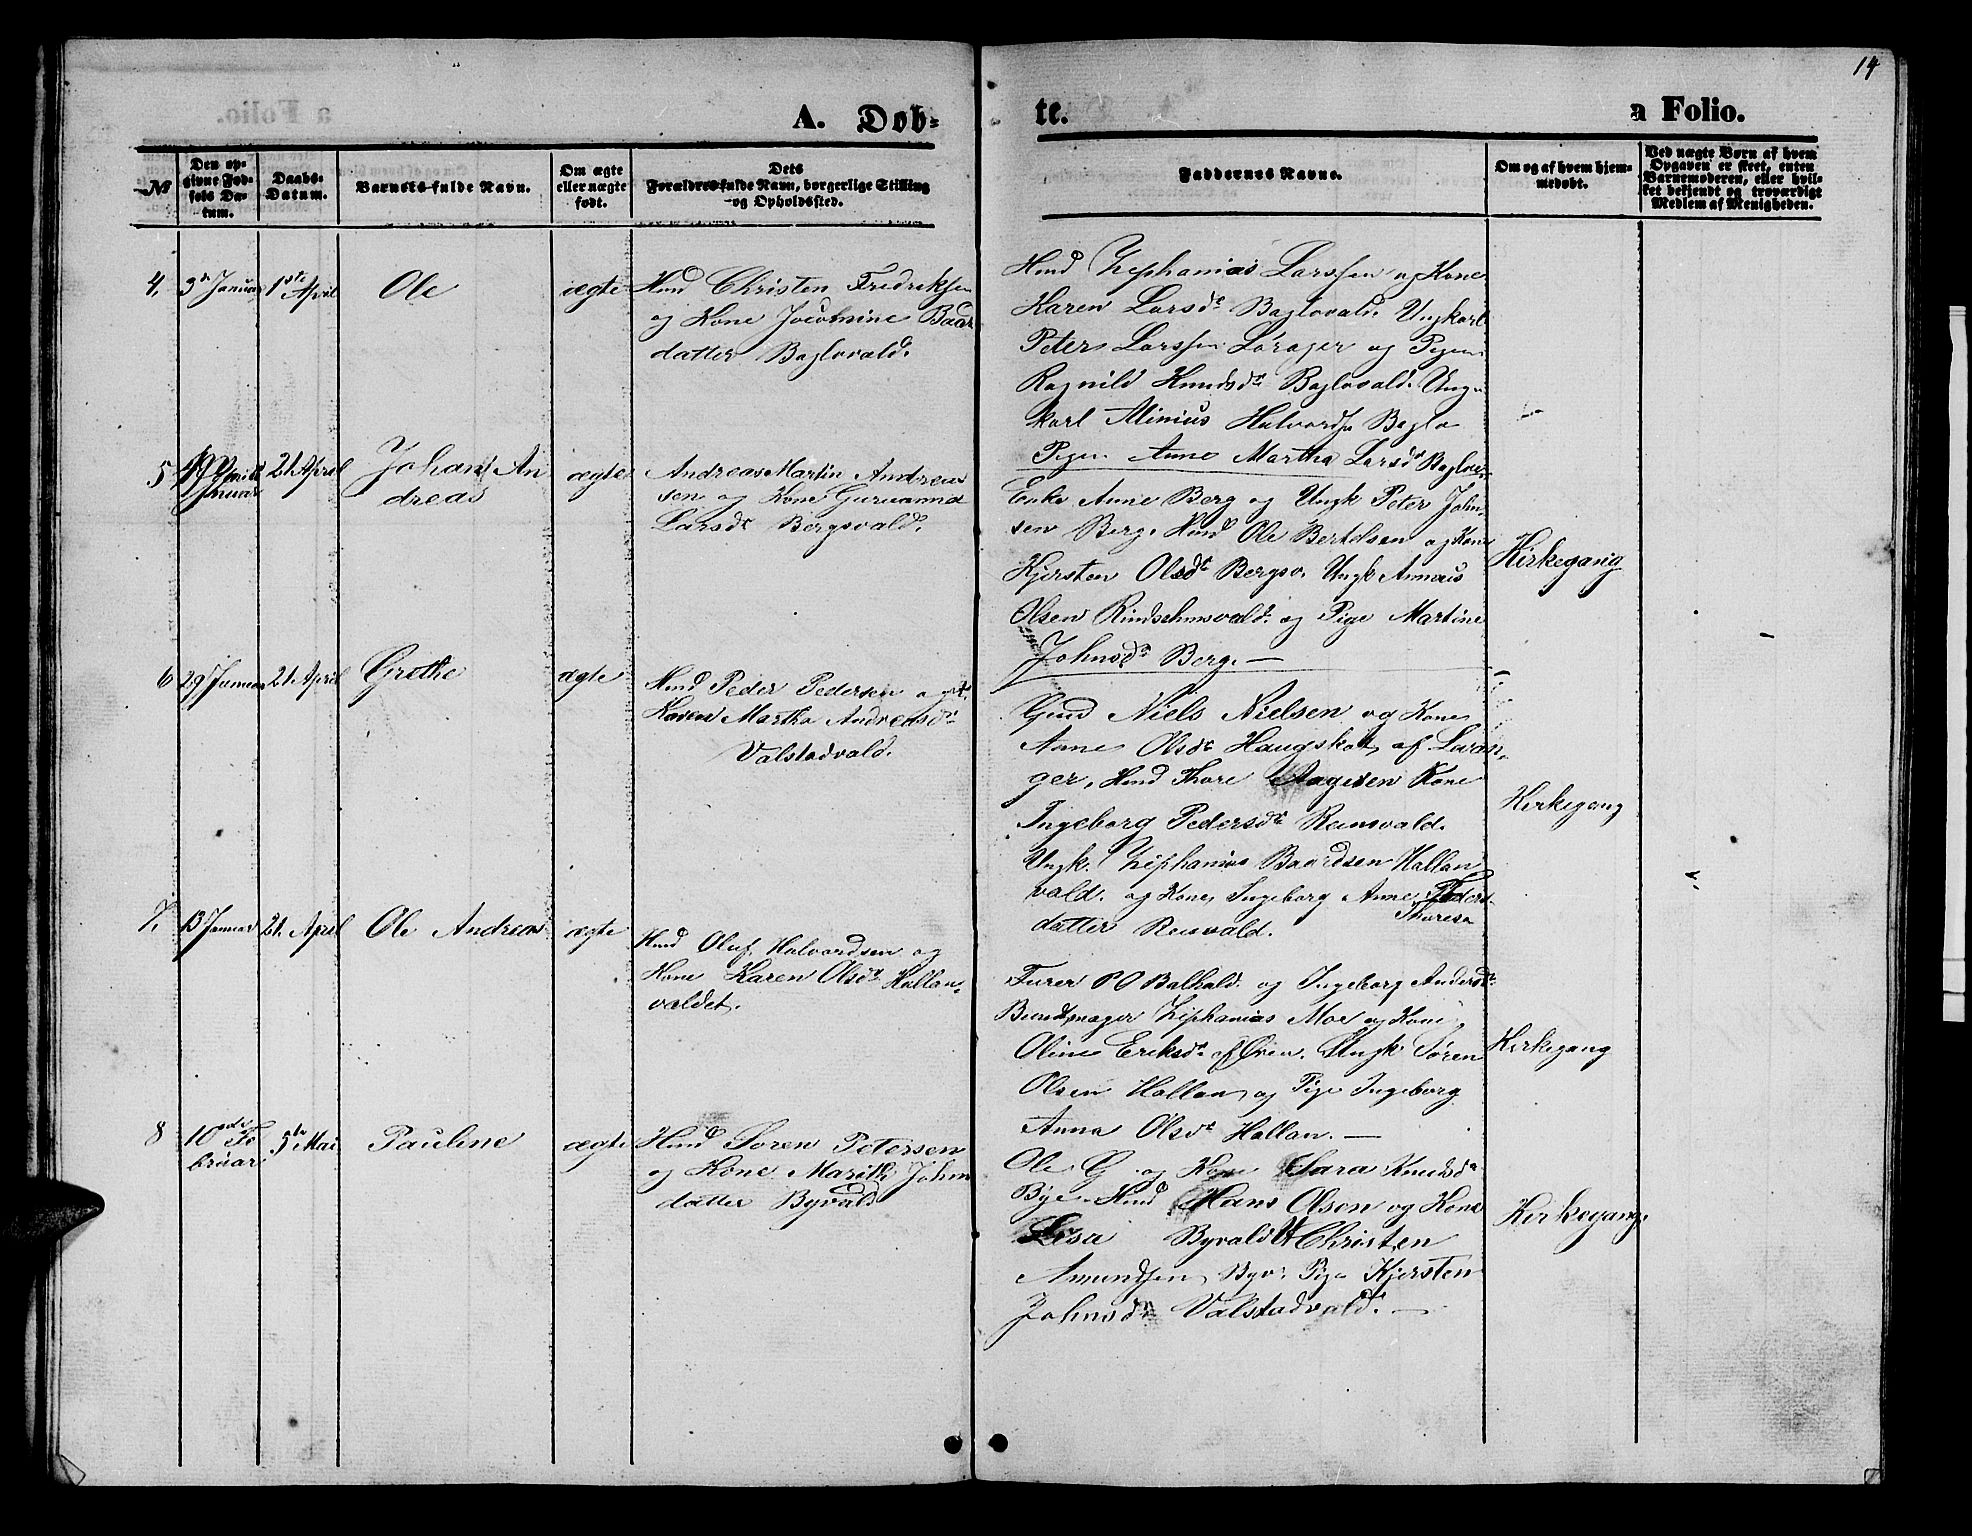 14
A. Døb-
te.
a Folio.
№
Den op-
givne Fød-
sels Da-
tum.
Daabs-
Datum.
Barnets fulde Navn.
Om ægte
eller uægte
født.
Dets
Forældres fulde Navn, borgerlige Stilling
og Opholdssted.
Faddernes Navne.
Om og af hvem hjem-
medøbt.
Ved uægte Børn af hvem
Opgaven er skeet, enten
Barnemoderen, eller hvil-
ket bekjendt og troværdigt
Medlem af Menigheden.
4.
3 Januar
1ste April
Ole
ægte
Hmd Christen Fredriksen
og Kone Jacobmine Baar
datter Baglovald.
Hmd Zephanias Larssen og Kone
Karen Larsdt Baglovald. Ungkarl
Peter Larssen Lørager og Pigen
Ragnild Knudsdt Baglovald. Ung-
karl Alinius Halvords Baglo
Pigen Anne Martha Larsdt
5
21 April
Johan An
dreas
ægte
Andreas Martin Andrea
sen og Kone Guruanna
Larsdt Bergsvald.
Enke Anne Berg og Ungk Peter John-
sen Berg. Hmd Ole Bertelsen og Kone
Kjersten Olsdt Bergsv. Ungk Annæus
Olsen Rindsehmsvald. og Pige Martine
Johnsdt Berg.
Kirkegang
6
29 Januar
21 April
Grethe
ægte
Hmd Peder Pedersen og
Konen Martha Andreasdt
Valstadvald.
Gmd Niels Nielsen og Kone
Anne Olsdt Haugskot, af Levan-
ger, Hmd Thore Aagesen Kone
Ingeborg Pedersdt Reinsvald.
Ungk. Zephanias Baardsen Hallan
vald. og Kone, Ingeborg Anne
Thoresa
datter Reinsvald.
Kirkegang
7.
13 Januar
21. April
Ole Andreas
ægte
Hmd Oluf Halvordsen og
Kone Karen Olsdt Hallan-
valdet.
Furer P O Balhald og Ingeborg Andersdt
Zephanias Moe og Kone
Oline Eriksdt Ungk Søren
Olsen Hallan, og Pige Ingeborg
Anna Olsdt Hallan.
Kirkegang
8
10de Fe
bruar
5te Mai
Pauline
ægte
Hmd Soren Petersen
og Kone Marith John
datter Byvald
Ole G og Kone Sara Knudsdt
Bye. Hmd Hans Olsen og Kone
Lisa Byvald Christen
Amundsen Byv. Pige Kjersten
Johnsdt Valstadvald.
Kirkegang.